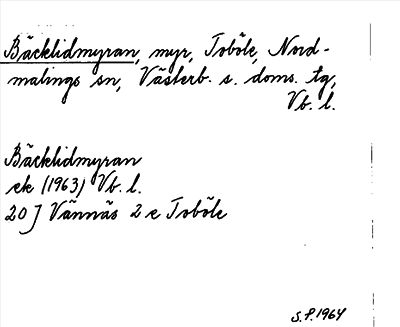 Bäcklidmyran, myr, Toböle, Nord-
malings sn, Västerb. s. doms. tg,
Vb. l.
Bäcklidmyran
ek (1963) Vb. l.
20 J Vännäs 2 e Toböle
S.P. 1964